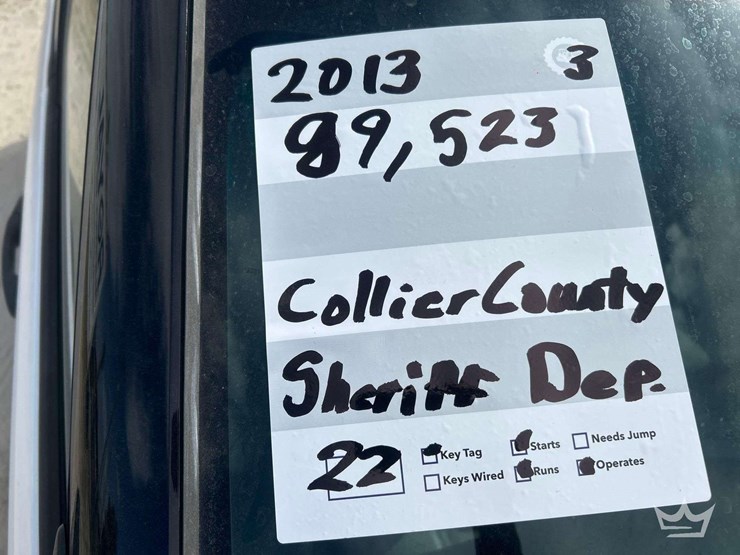 2013 3
89,523
Collier County
Sheriff Dep.
22 Key Tag Starts Needs Jump
Keys Wired Runs Operates